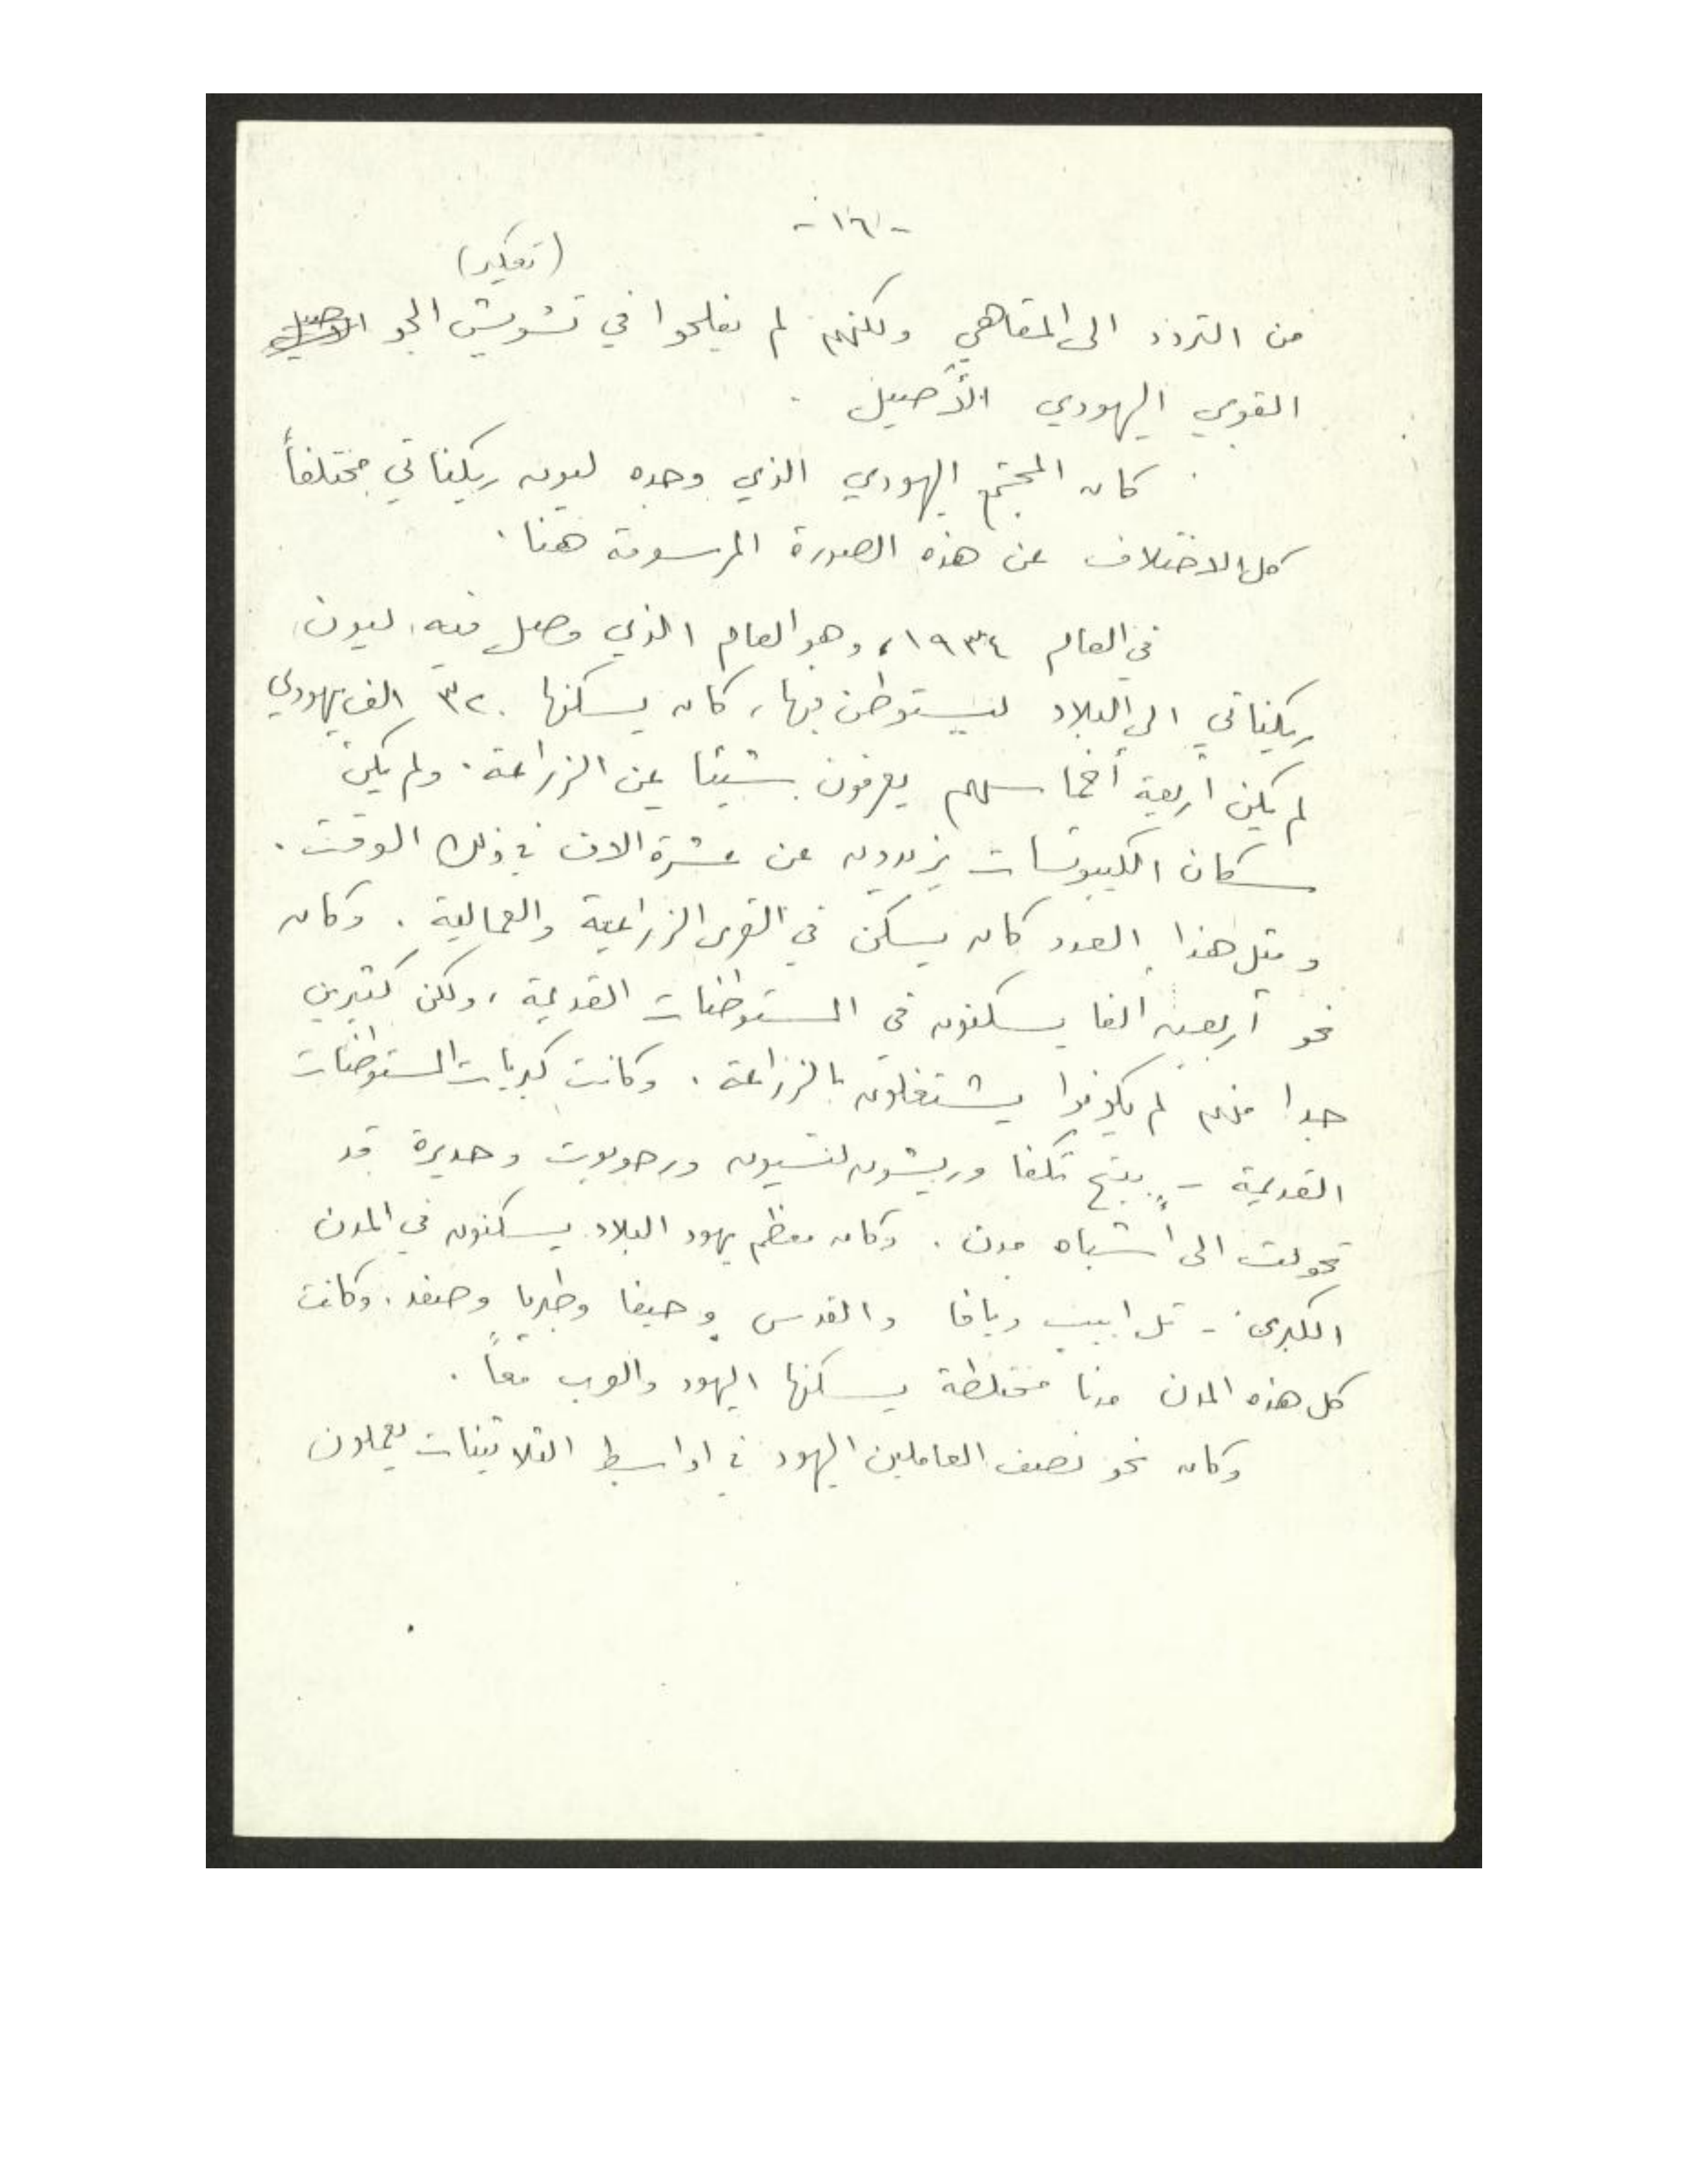 - ١٦ -
(تعكير)
من التردد الى المقاهي ولكنهم لم يفلحوا في تشويش الجو الاصيل
القوي اليهودي الأصيل .
كان المجتمع اليهودي الذي وجده ليون ريكناتي مختلفاً
كل الاختلاف عن هذه الصورة المرسومة هنا .
في العام ١٩٣٤، وهو العام الذي وصل فيه ليون
ريكناتي الى البلاد ليستوطن فيها، كان يسكنها ٣٢٠ الف يهودي
لم يكن أربعة أخماسهم يعرفون شيئا عن الزراعة . ولم يكن
سكان الكيبوتسات يزيدون عن عشرة الاف في ذلك الوقت .
ومثل هذا العدد كان يسكن في القرى الزراعية والعمالية . وكان
نحو أربعين الفا يسكنون في المستوطنات القديمة ، ولكن كثيرين
جدا منهم لم يكونوا يشتغلون بالزراعة . وكانت كبريات المستوطنات
القديمة - بيتح تكفا وريشون لتسيون ورحوبوت وحديرة قد
تحولت الى أشباه مدن . وكان معظم يهود البلاد يسكنون في المدن
الكبرى - تل ابيب ويافا والقدس وحيفا وطبريا وصفد . وكانت
كل هذه المدن مدنا مختلطة يسكنها اليهود والعرب معاً .
وكان نحو نصف العاملين اليهود في اواسط الثلاثينات يعملون